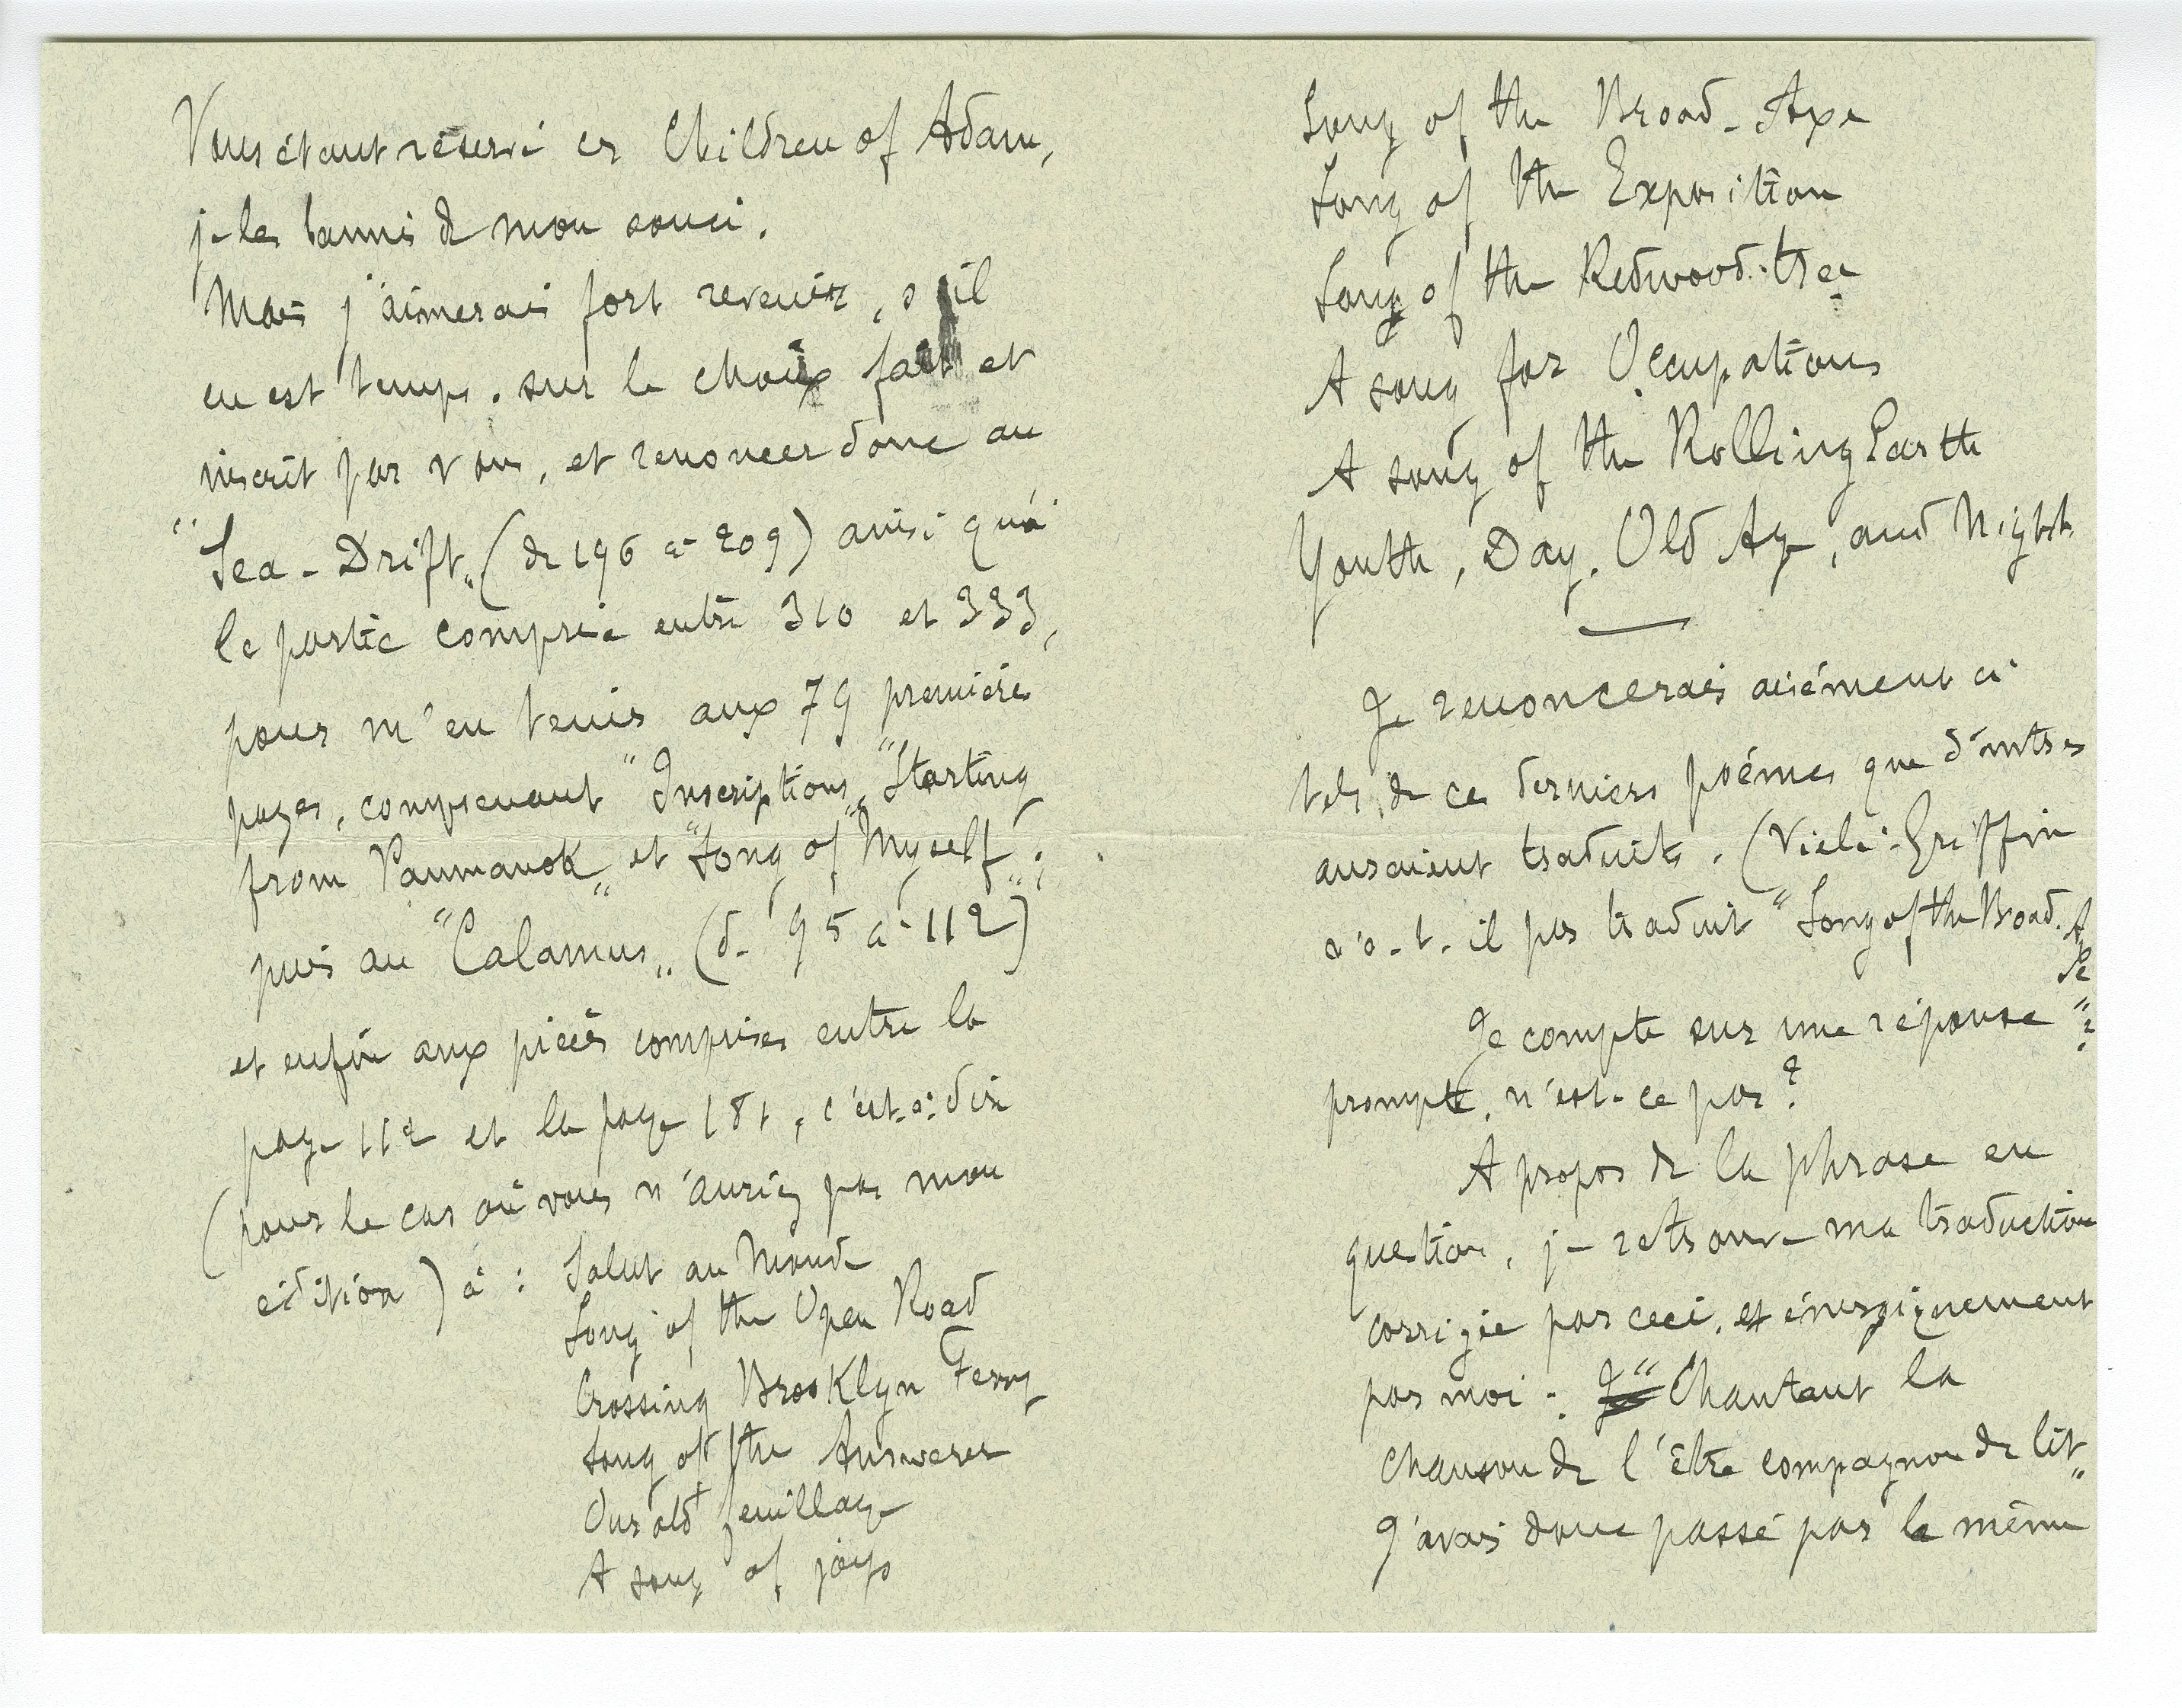 Vous étant réservé ces Children of Adam,
je les bannis de mon souci.
Mais j'aimerais fort revenir, s'il
en est temps, sur le choix fait et
inscrit par vous, et renoncer donc au
"Sea-Drift" (de 196 à 209) ainsi qu'à
la partie comprise entre 310 et 333,
pour m'en tenir aux 79 premières
pages, comprenant "Inscriptions", "Starting
from Paumanok" et "Song of Myself";
puis au "Calamus" (de 95 à 112)
et enfin aux pièces comprises entre la
page 112 et la page 181, c'est-à-dire
(pour le cas où vous n'auriez pas mon
édition) à : Salut au Monde
Song of the Open Road
Crossing Brooklyn Ferry
Song of the Answerer
Our old feuillage
A song of joys
Song of the Broad-Axe
Song of the Exposition
Song of the Redwood-tree
A song for Occupations
A song of the Rolling Earth
Youth, Day, Old Age, and Night
Je renoncerais aisément à
tels de ces derniers poèmes que d'autres
auraient traduits. (Vielé-Griffin
n'a-t-il pas traduit "Song of the Broad-Axe"?
Je compte sur une réponse
prompte, n'est-ce pas?
A propos de la phrase en
question, je retrouve ma traduction
corrigée par ceci, et énergiquement
par moi : "Chantant la
chanson de l'être compagnon de lit"
J'avais donc passé par le même